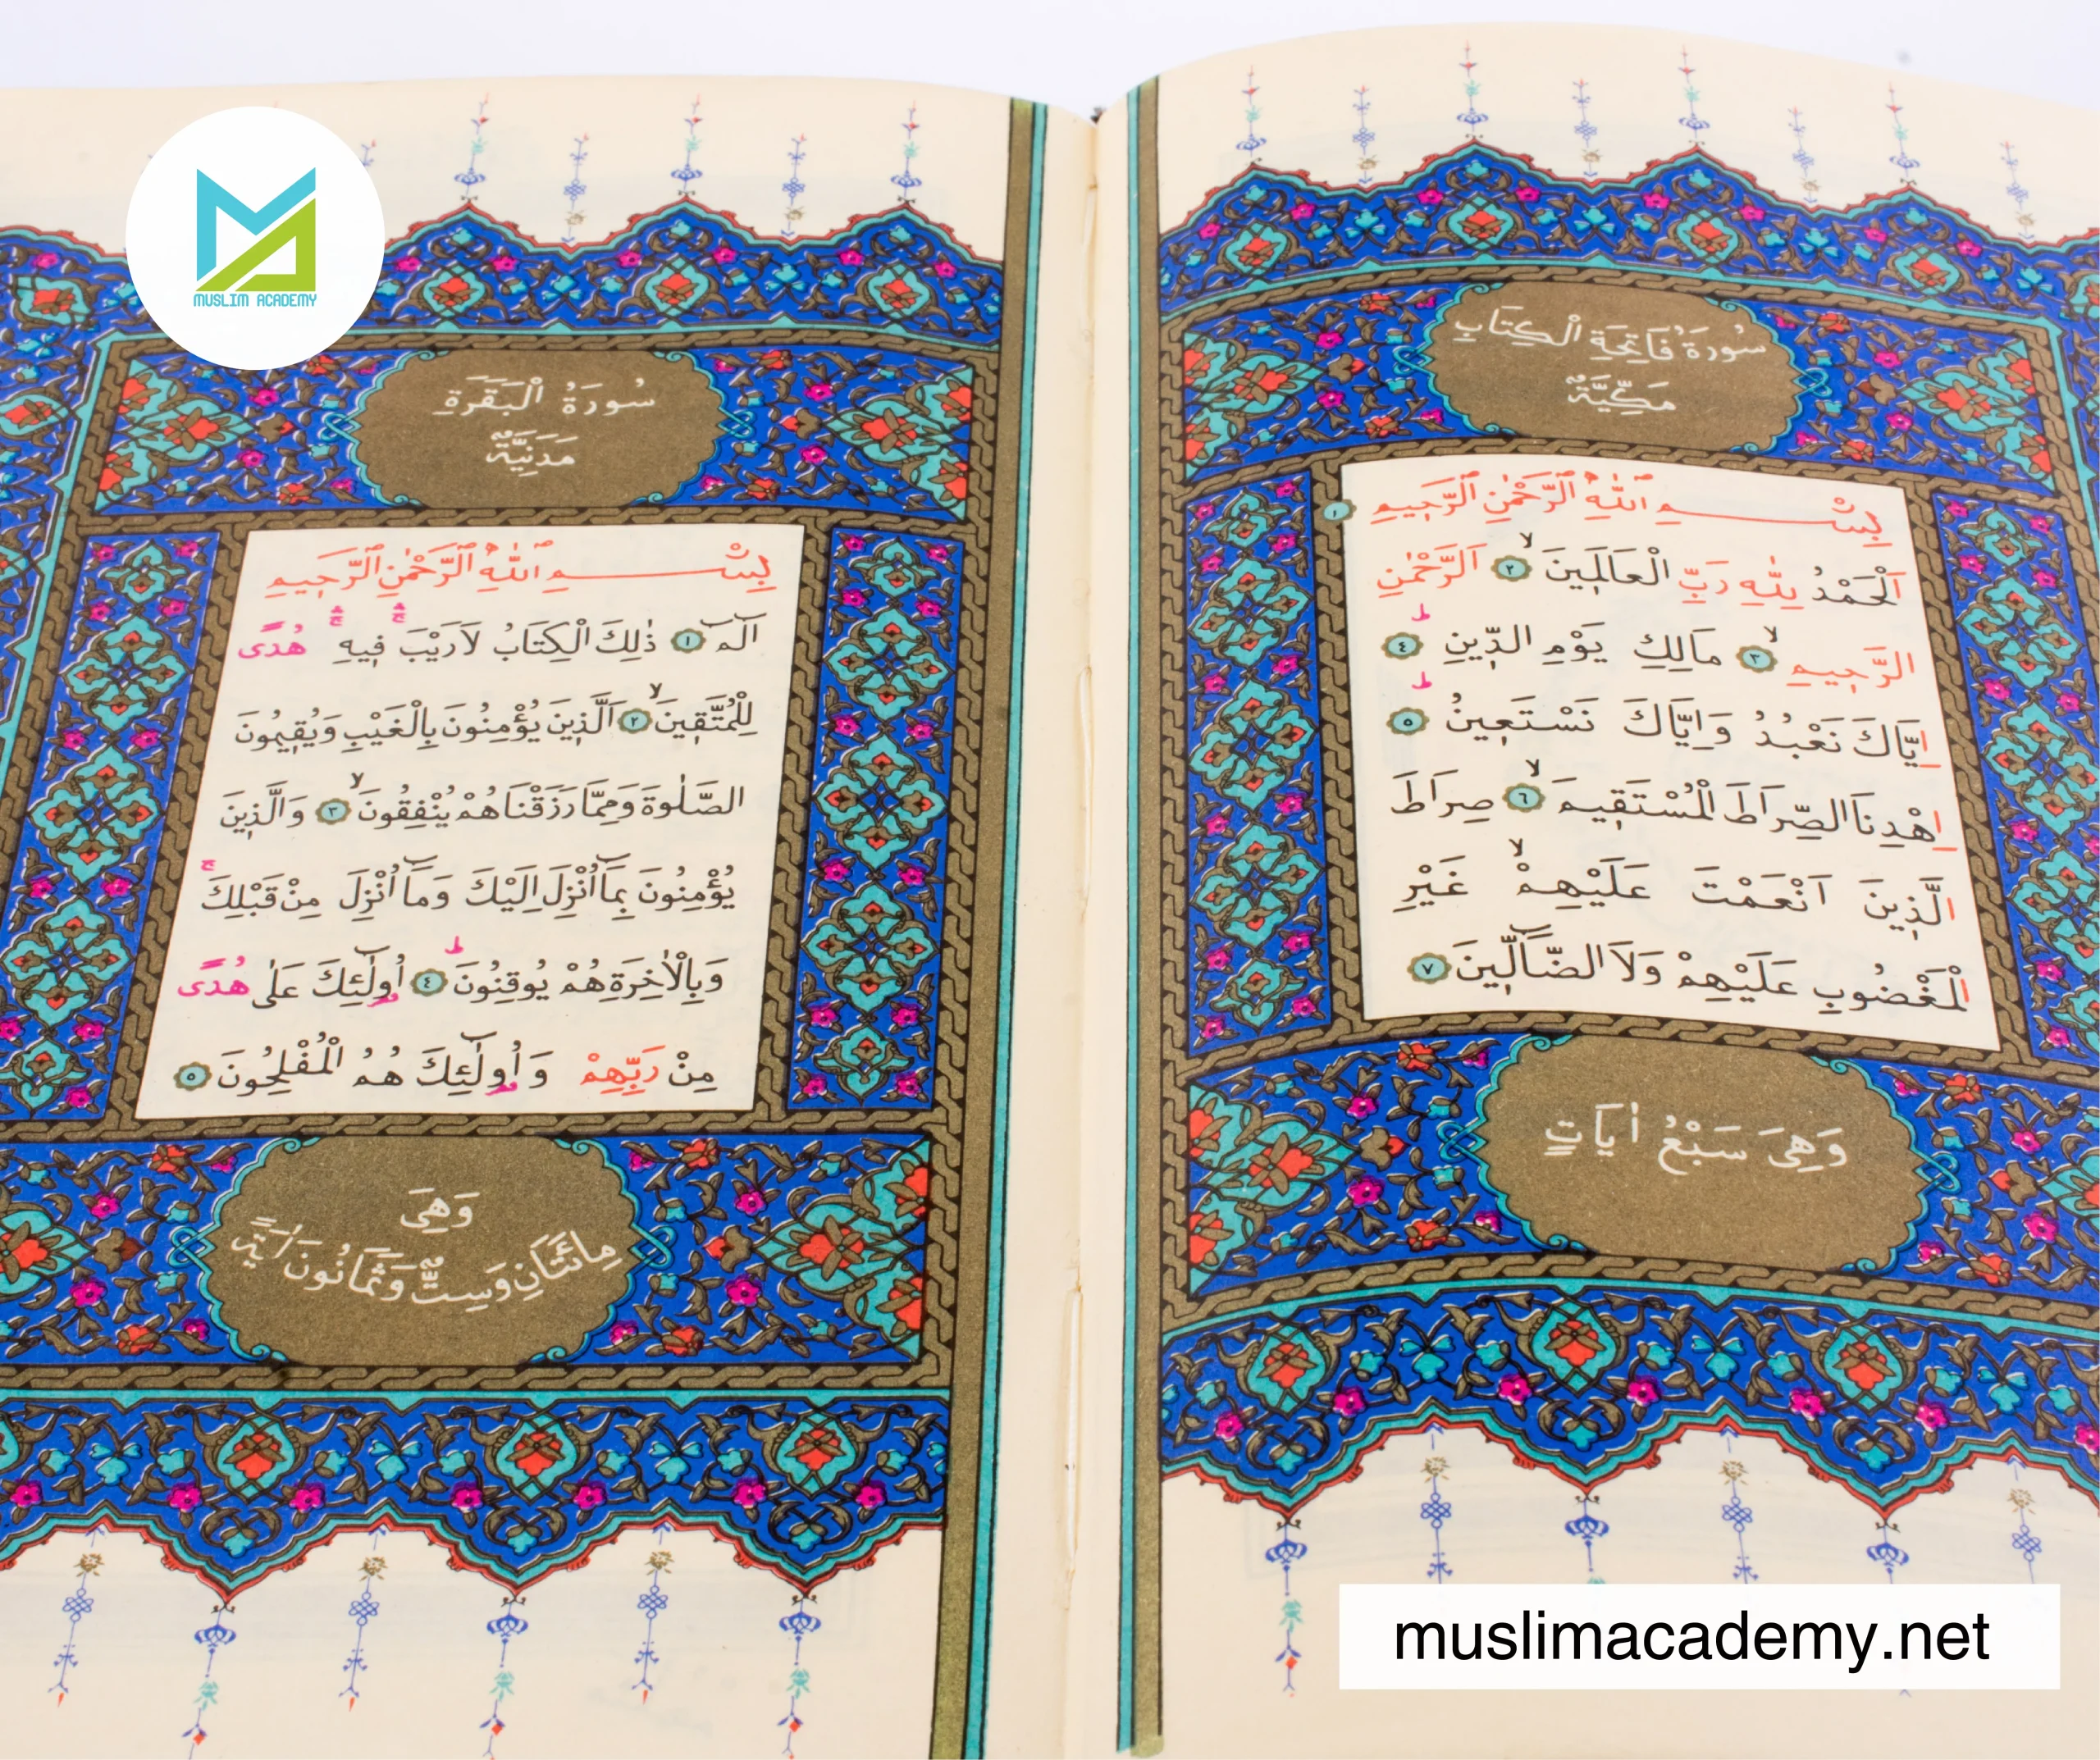 MUSLIM ACADEMY
سُورَةُ فَاتِحَةِ الْكِتَابِ
مَكِّيَّةٌ
بِسْمِ اللّٰهِ الرَّحْمٰنِ الرَّحِيمِ ١
اَلْحَمْدُ لِلّٰهِ رَبِّ الْعَالَمِينَۙ ٢ اَلرَّحْمٰنِ
الرَّحِيمِۙ ٣ مَالِكِ يَوْمِ الدِّينِۜ ٤
اِيَّاكَ نَعْبُدُ وَاِيَّاكَ نَسْتَعِينُۜ ٥
اِهْدِنَا الصِّرَاطَ الْمُسْتَقِيمَۙ ٦ صِرَاطَ
الَّذِينَ اَنْعَمْتَ عَلَيْهِمْۙ غَيْرِ
الْمَغْضُوبِ عَلَيْهِمْ وَلَا الضَّٓالِّينَ ٧
وَهِىَ سَبْعُ اٰيَاتٍ
سُورَةُ الْبَقَرَةِ
مَدَنِيَّةٌ
بِسْمِ اللّٰهِ الرَّحْمٰنِ الرَّحِيمِ
الٓمٓ ١ ذٰلِكَ الْكِتَابُ لَا رَيْبَۛ فِيهِۛ هُدًى
لِلْمُتَّقِينَۙ ٢ اَلَّذِينَ يُؤْمِنُونَ بِالْغَيْبِ وَيُقِيمُونَ
الصَّلٰوةَ وَمِمَّا رَزَقْنَاهُمْ يُنْفِقُونَۙ ٣ وَالَّذِينَ
يُؤْمِنُونَ بِمَٓا اُنْزِلَ اِلَيْكَ وَمَٓا اُنْزِلَ مِنْ قَبْلِكَۚ
وَبِالْاٰخِرَةِ هُمْ يُوقِنُونَۜ ٤ اُو۬لٰٓئِكَ عَلٰى هُدًى
مِنْ رَبِّهِمْ وَاُو۬لٰٓئِكَ هُمُ الْمُفْلِحُونَ ٥
وَهِىَ
مِائَتَانِ وَسِتٌّ وَثَمَانُونَ اٰيَةً
muslimacademy.net